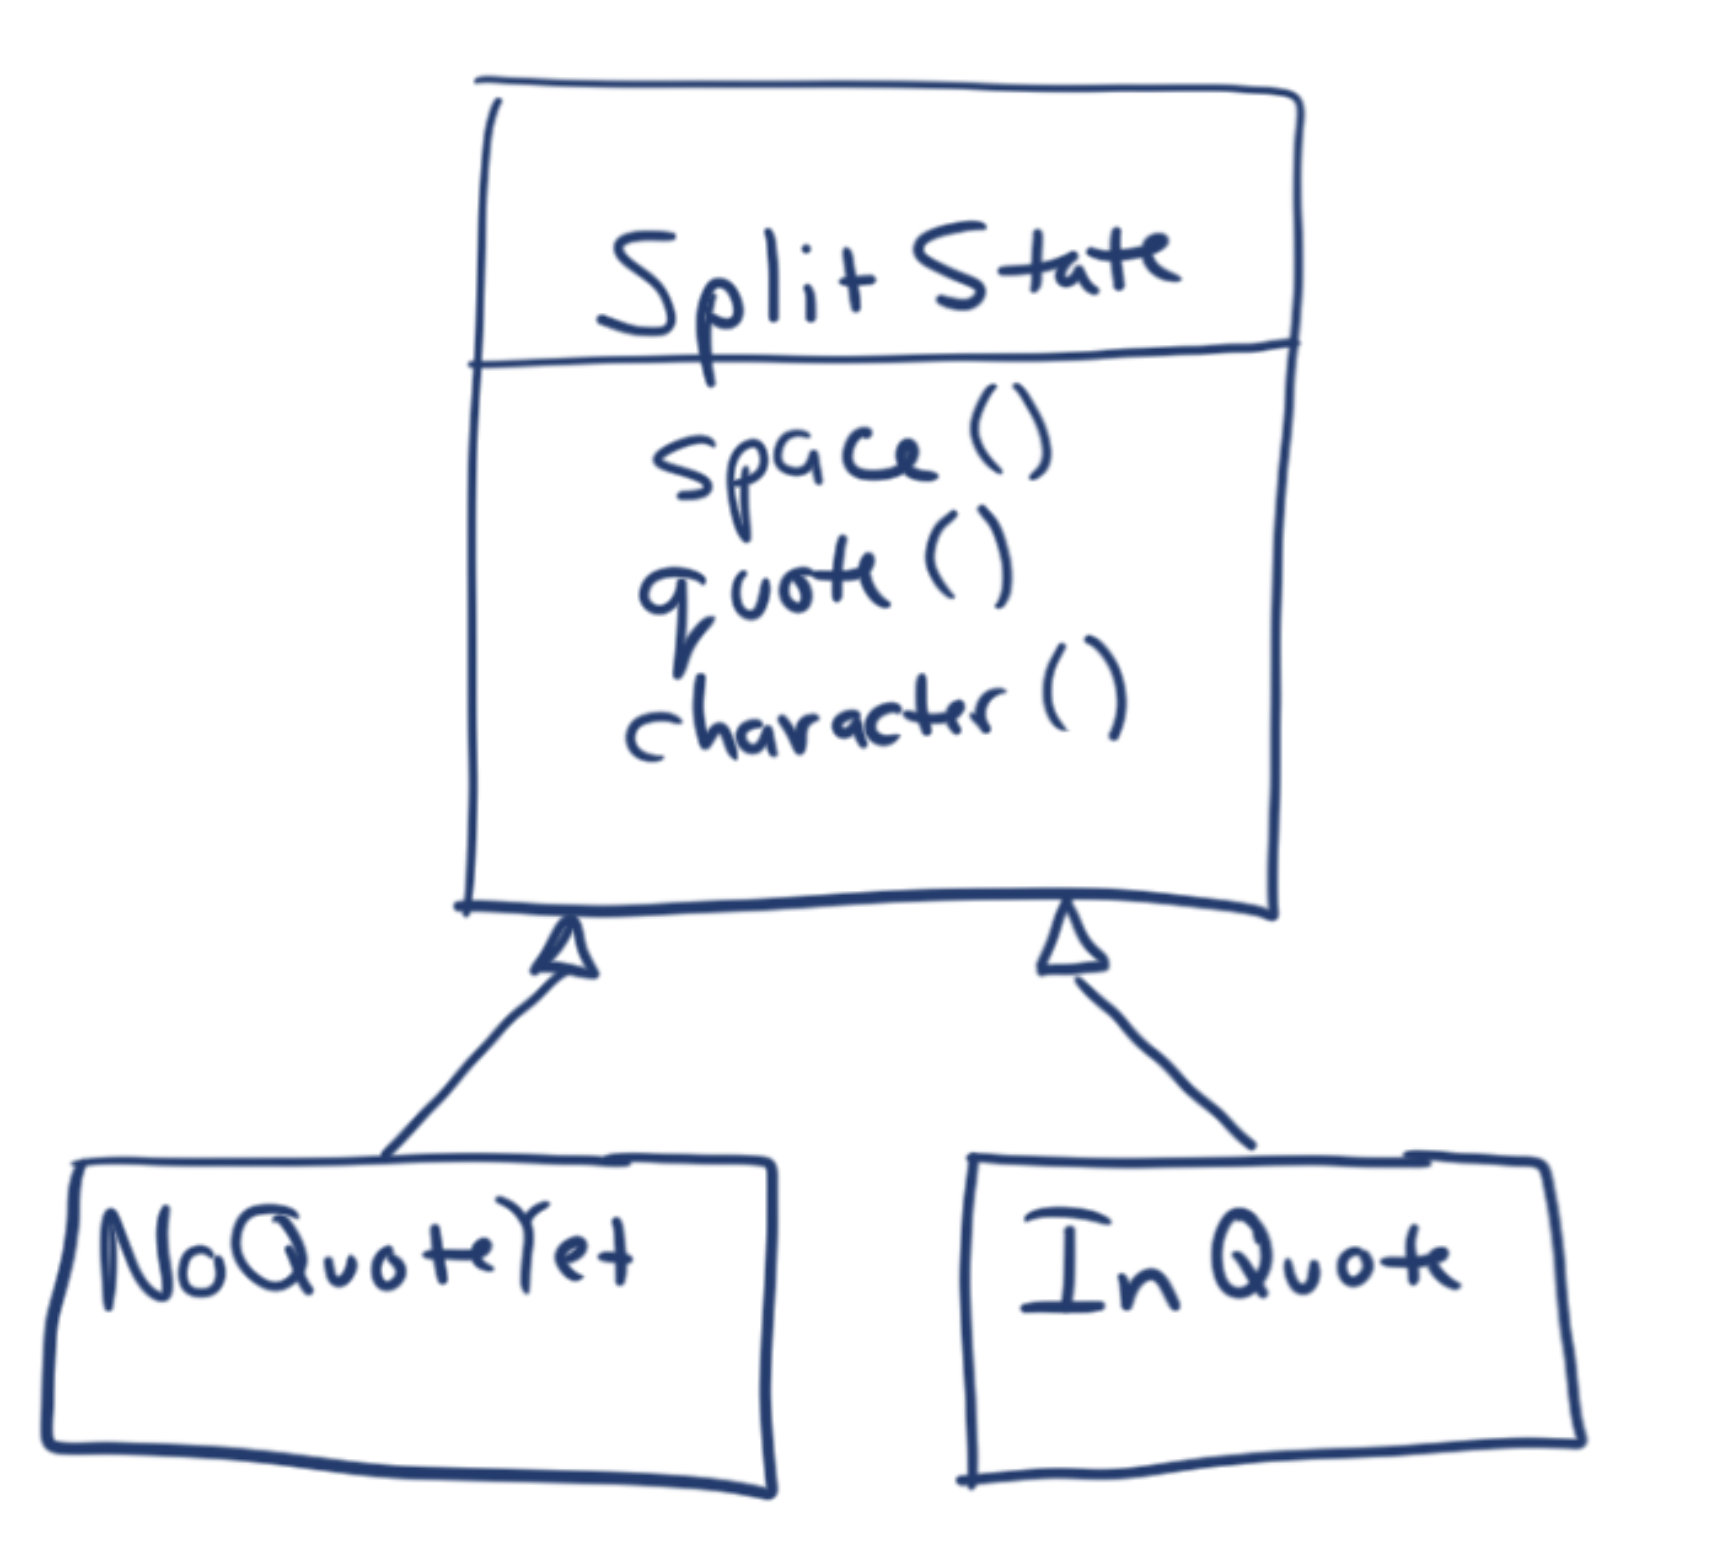 SplitState
space()
quote()
character()
NoQuoteYet
InQuote